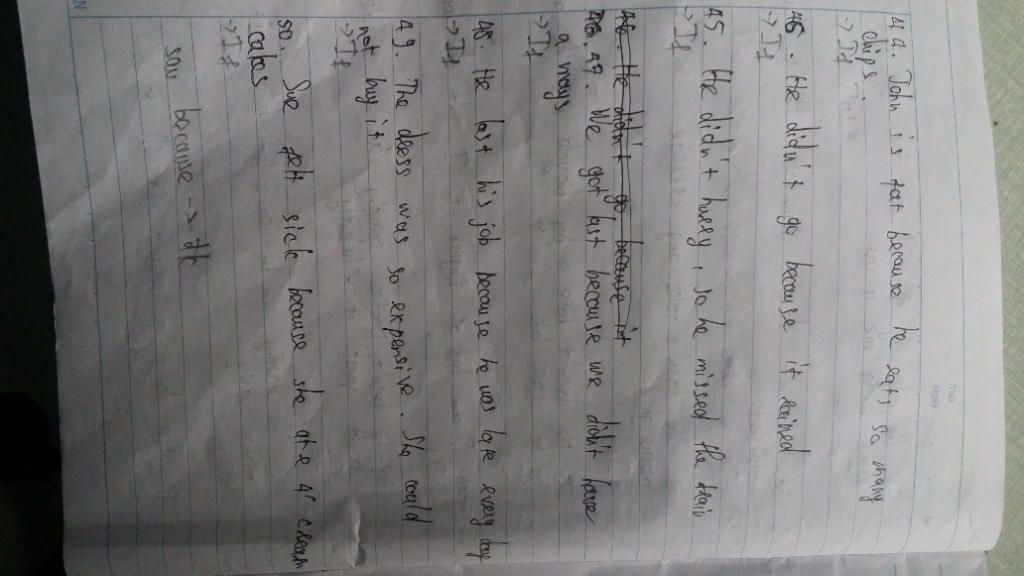 44. John is fat because he eats so many
chips.
→ If
46. He didn't go because it rained
→ If
45. He didn't hurry, so he missed the train
→ If
46. He didn't go because it
47. We got last because we didn't have
a mays
→ If
48. He last his job because he was late every day
→ If
49. The dress was so expensive. She could
not buy it
→ If
50. Sue felt sick because she ate 4 cream
cakes
→ If
sau because → đk